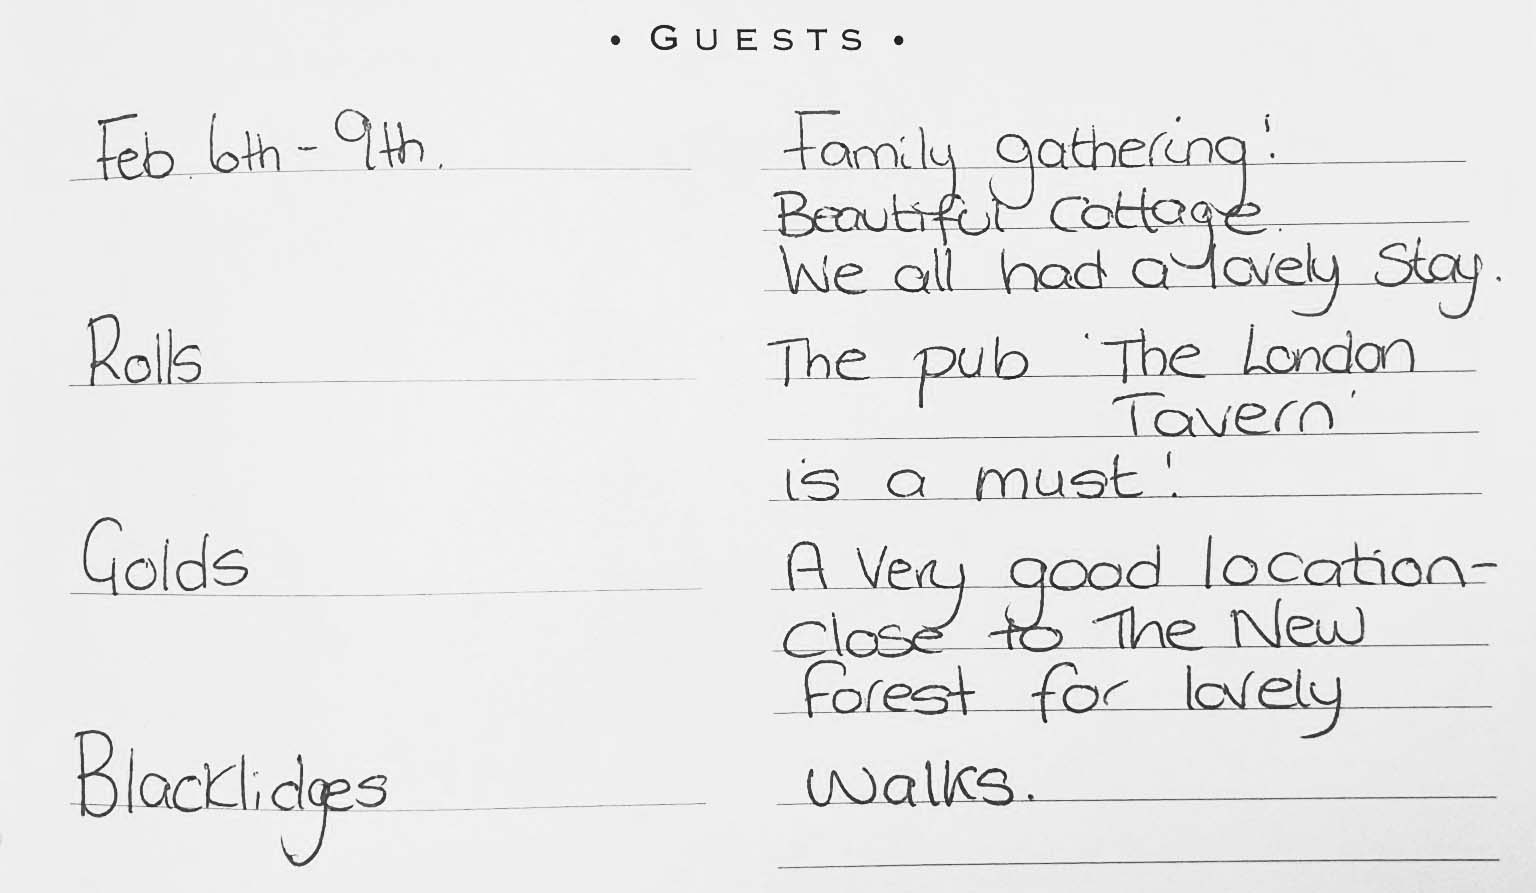 • GUESTS •
Feb 6th - 9th.
Family gathering!
Beautiful Cottage.
We all had a lovely Stay.
Rolls
The pub 'The London
Tavern'
is a must!
Golds
A Very good location-
close to The New
Forest for lovely
Blacklidges
Walks.